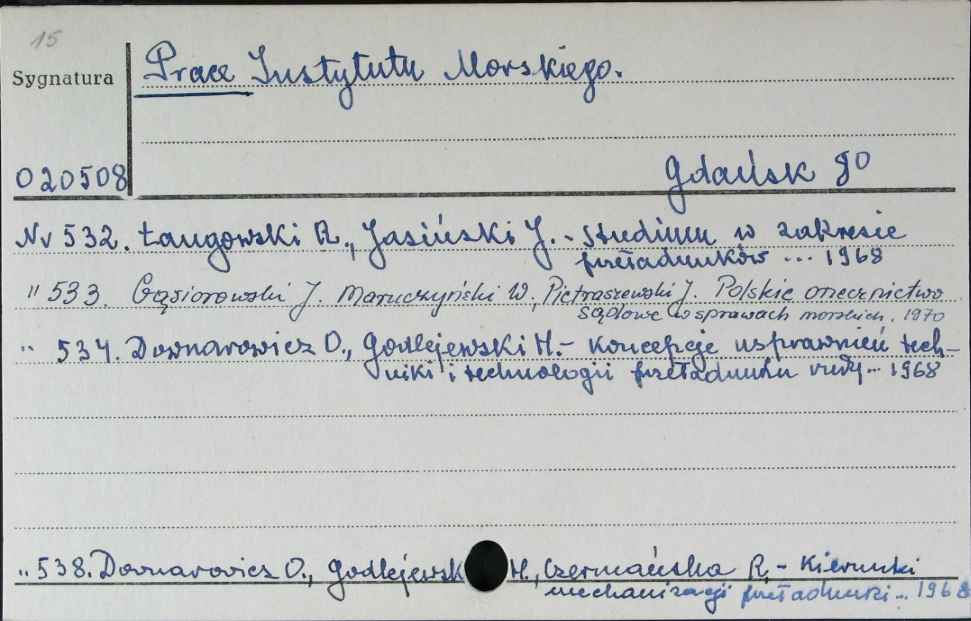 15
Sygnatura
Prace Instytutu Morskiego.
020508
Gdańsk 8°
Nr 532. Łangowski R., Jasiński J. - Studium w zakresie
przeładunków ... 1968
" 533. Gąsiorowski J. Maruczyński W, Pietraszewski J. Polskie orzecznictwo
sądowe w sprawach morskich. 1970
" 534. Downarowicz O., Godlejewski H. - Koncepcje usprawnień tech-
niki i technologii przeładunku rudy ... 1968
" 538. Downarowicz O., Godlejewsk H., Czermańska R. - Kierunki
mechanizacji przeładunki ... 1968